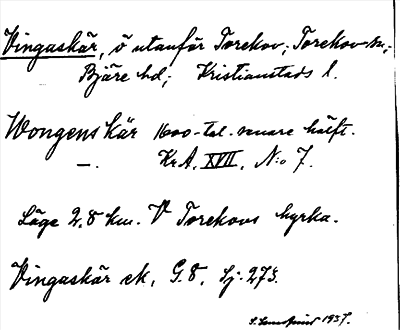 Vingaskär, ö utanför Torekov; Torekov sn;
Bjäre hd; Kristianstads l.
Wongens kär 1600-tal. senare hälft.
—. Kr.A. XVII, N:o 7.
Läge 2,8 km. V Torekovs kyrka.
Vingaskär ek, G.8, Sj: 273.
1937.